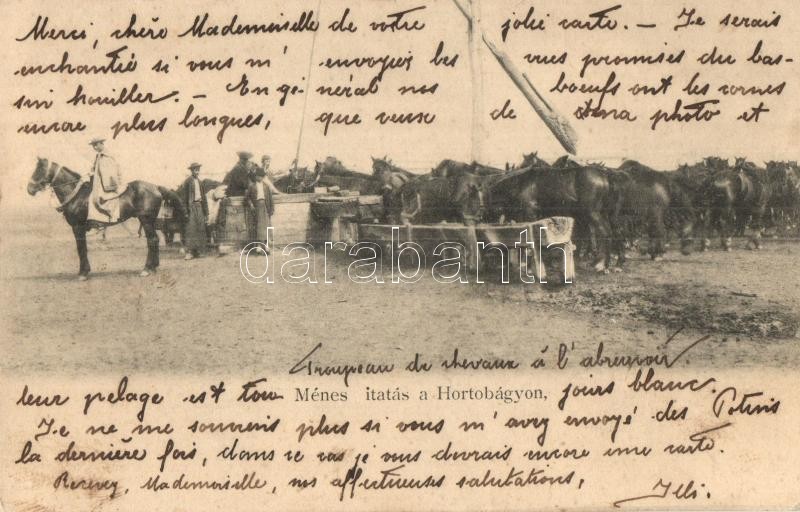 Merci, chère Mademoiselle de votre jolie carte. — Je serais
enchantée si vous m' envoyiez les vues promises du bas-
sin houiller. — En général nos boeufs ont les cornes
encore plus longues, que ceux de ma photo et
darabanth
Troupeau de chevaux à l'abreuvoir.
leur pelage est toujours blanc.
Ménes itatás a Hortobágyon,
Je ne me souviens plus si vous m'avez envoyé des Potins
la dernière fois, dans ce cas je vous devrais encore une carte.
Recevez, Mademoiselle, nos affectueuses salutations,
Illi.